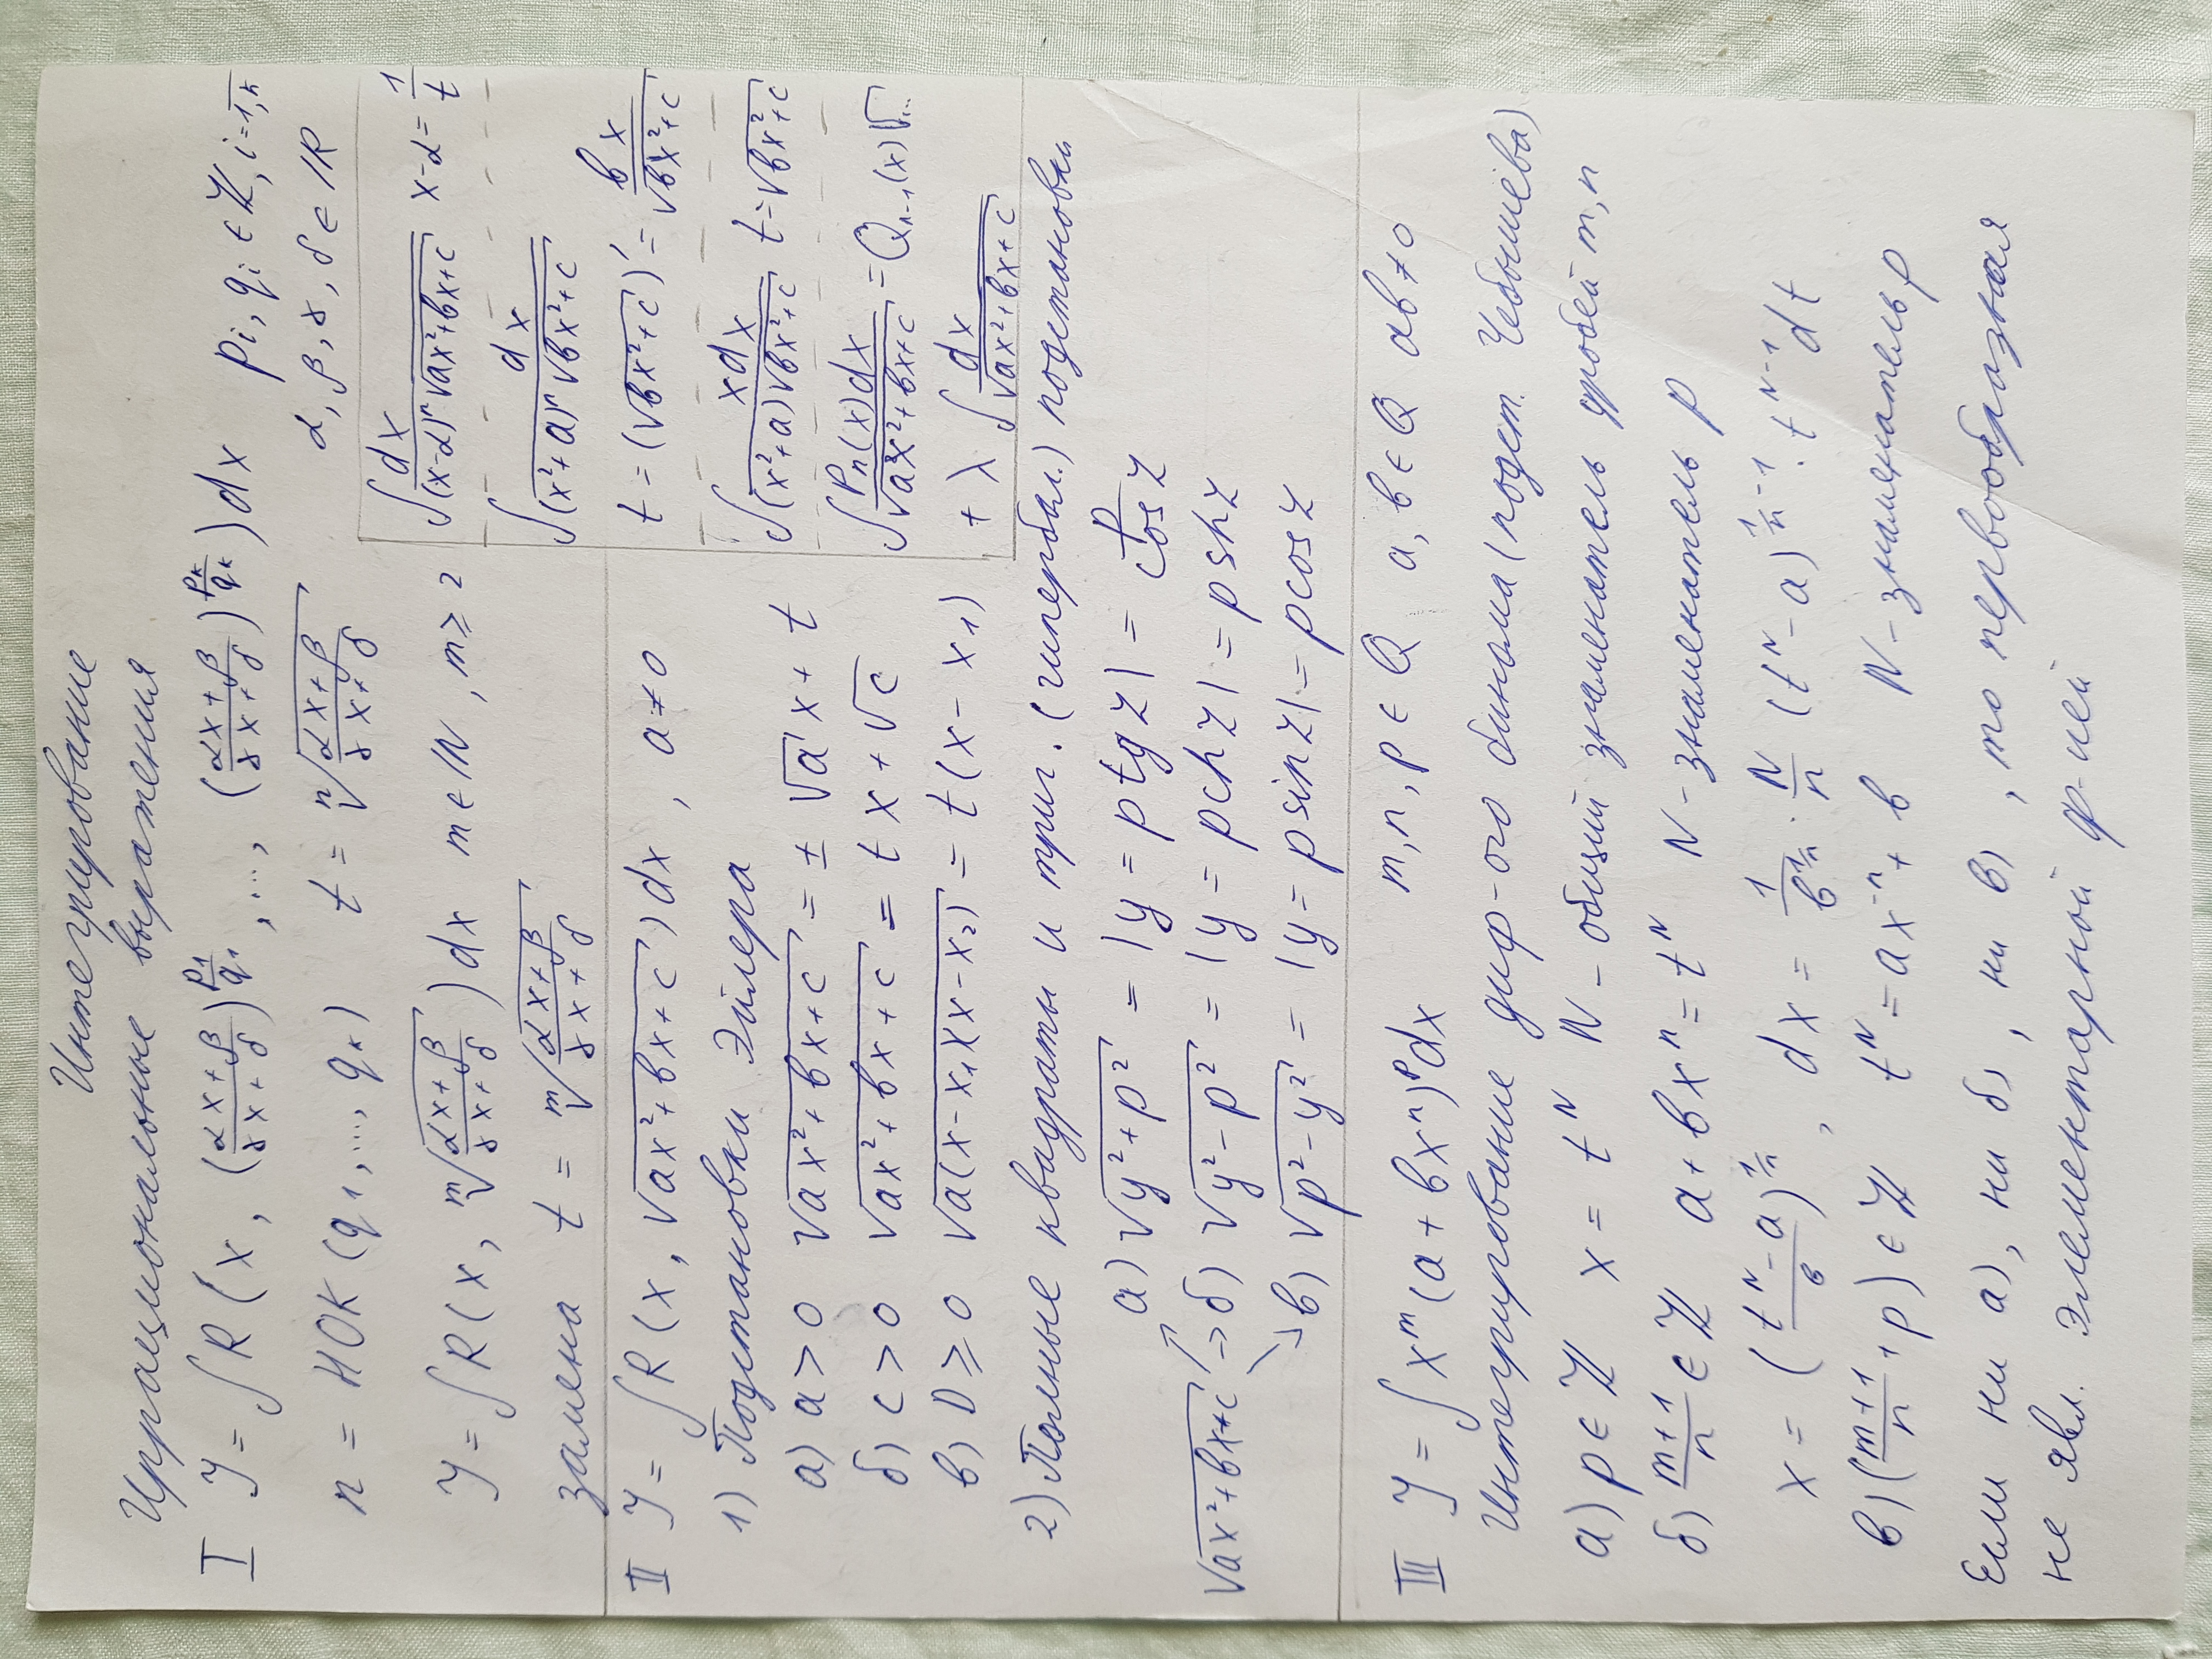 Интегрирование
Иррациональные выражения
I y = ∫ R (x, (αx+β / γx+δ)^(p₁/q₁), ..., (αx+β / γx+δ)^(pₖ/qₖ)) dx pᵢ, qᵢ ∈ ℤ, i = 1,k
n = НОК (q₁, ..., qₖ) t = ⁿ√(αx+β / γx+δ) α, β, γ, δ ∈ ℝ
y = ∫ R (x, ᵐ√(αx+β / γx+δ)) dx m ∈ ℕ, m ⩾ 2
замена t = ᵐ√(αx+β / γx+δ)
∫ dx / (x-α)ⁿ√(ax²+bx+c) x-α = 1/t
∫ dx / (x²+a)ⁿ√(bx²+c)
t = (√(bx²+c))' = bx / √(bx²+c)
∫ xdx / (x²+a)√(bx²+c) t = √(bx²+c)
∫ Pₙ(x)dx / √(ax²+bx+c) = Qₙ₋₁(x)√...
+ λ ∫ dx / √(ax²+bx+c)
II y = ∫ R (x, √(ax²+bx+c)) dx, a ≠ 0
1) Подстановки Эйлера
а) a > 0 √(ax²+bx+c) = ± √a x + t
б) c > 0 √(ax²+bx+c) = tx + √c
в) D ⩾ 0 √(a(x-x₁)(x-x₂)) = t(x-x₁)
2) Полные квадраты и триг. (гипербол.) подстановки
а) √(y²+p²) = |y = p tg z| = p / cos z
√(ax²+bx+c) → б) √(y²-p²) = |y = p ch z| = p sh z
в) √(p²-y²) = |y = p sin z| = p cos z
III y = ∫ xᵐ(a+bxⁿ)ᵖdx m, n, p ∈ Q a, b ∈ Q ab ≠ 0
Интегрирование диф-ого бинома (подст. Чебышева)
а) p ∈ ℤ x = tᴺ N - общий знаменатель дробей m, n
б) m+1 / n ∈ ℤ a + bxⁿ = tᴺ N - знаменатель p
x = (tᴺ-a / b)^(1/n), dx = 1 / b^(1/n) · N/n (tᴺ-a)^(1/n -1) · tᴺ⁻¹ dt
в) (m+1 / n + p) ∈ ℤ tᴺ = ax⁻ⁿ + b N - знаменатель p
Если ни а), ни б), ни в), то первообразная
не явл. элементарной ф-цией